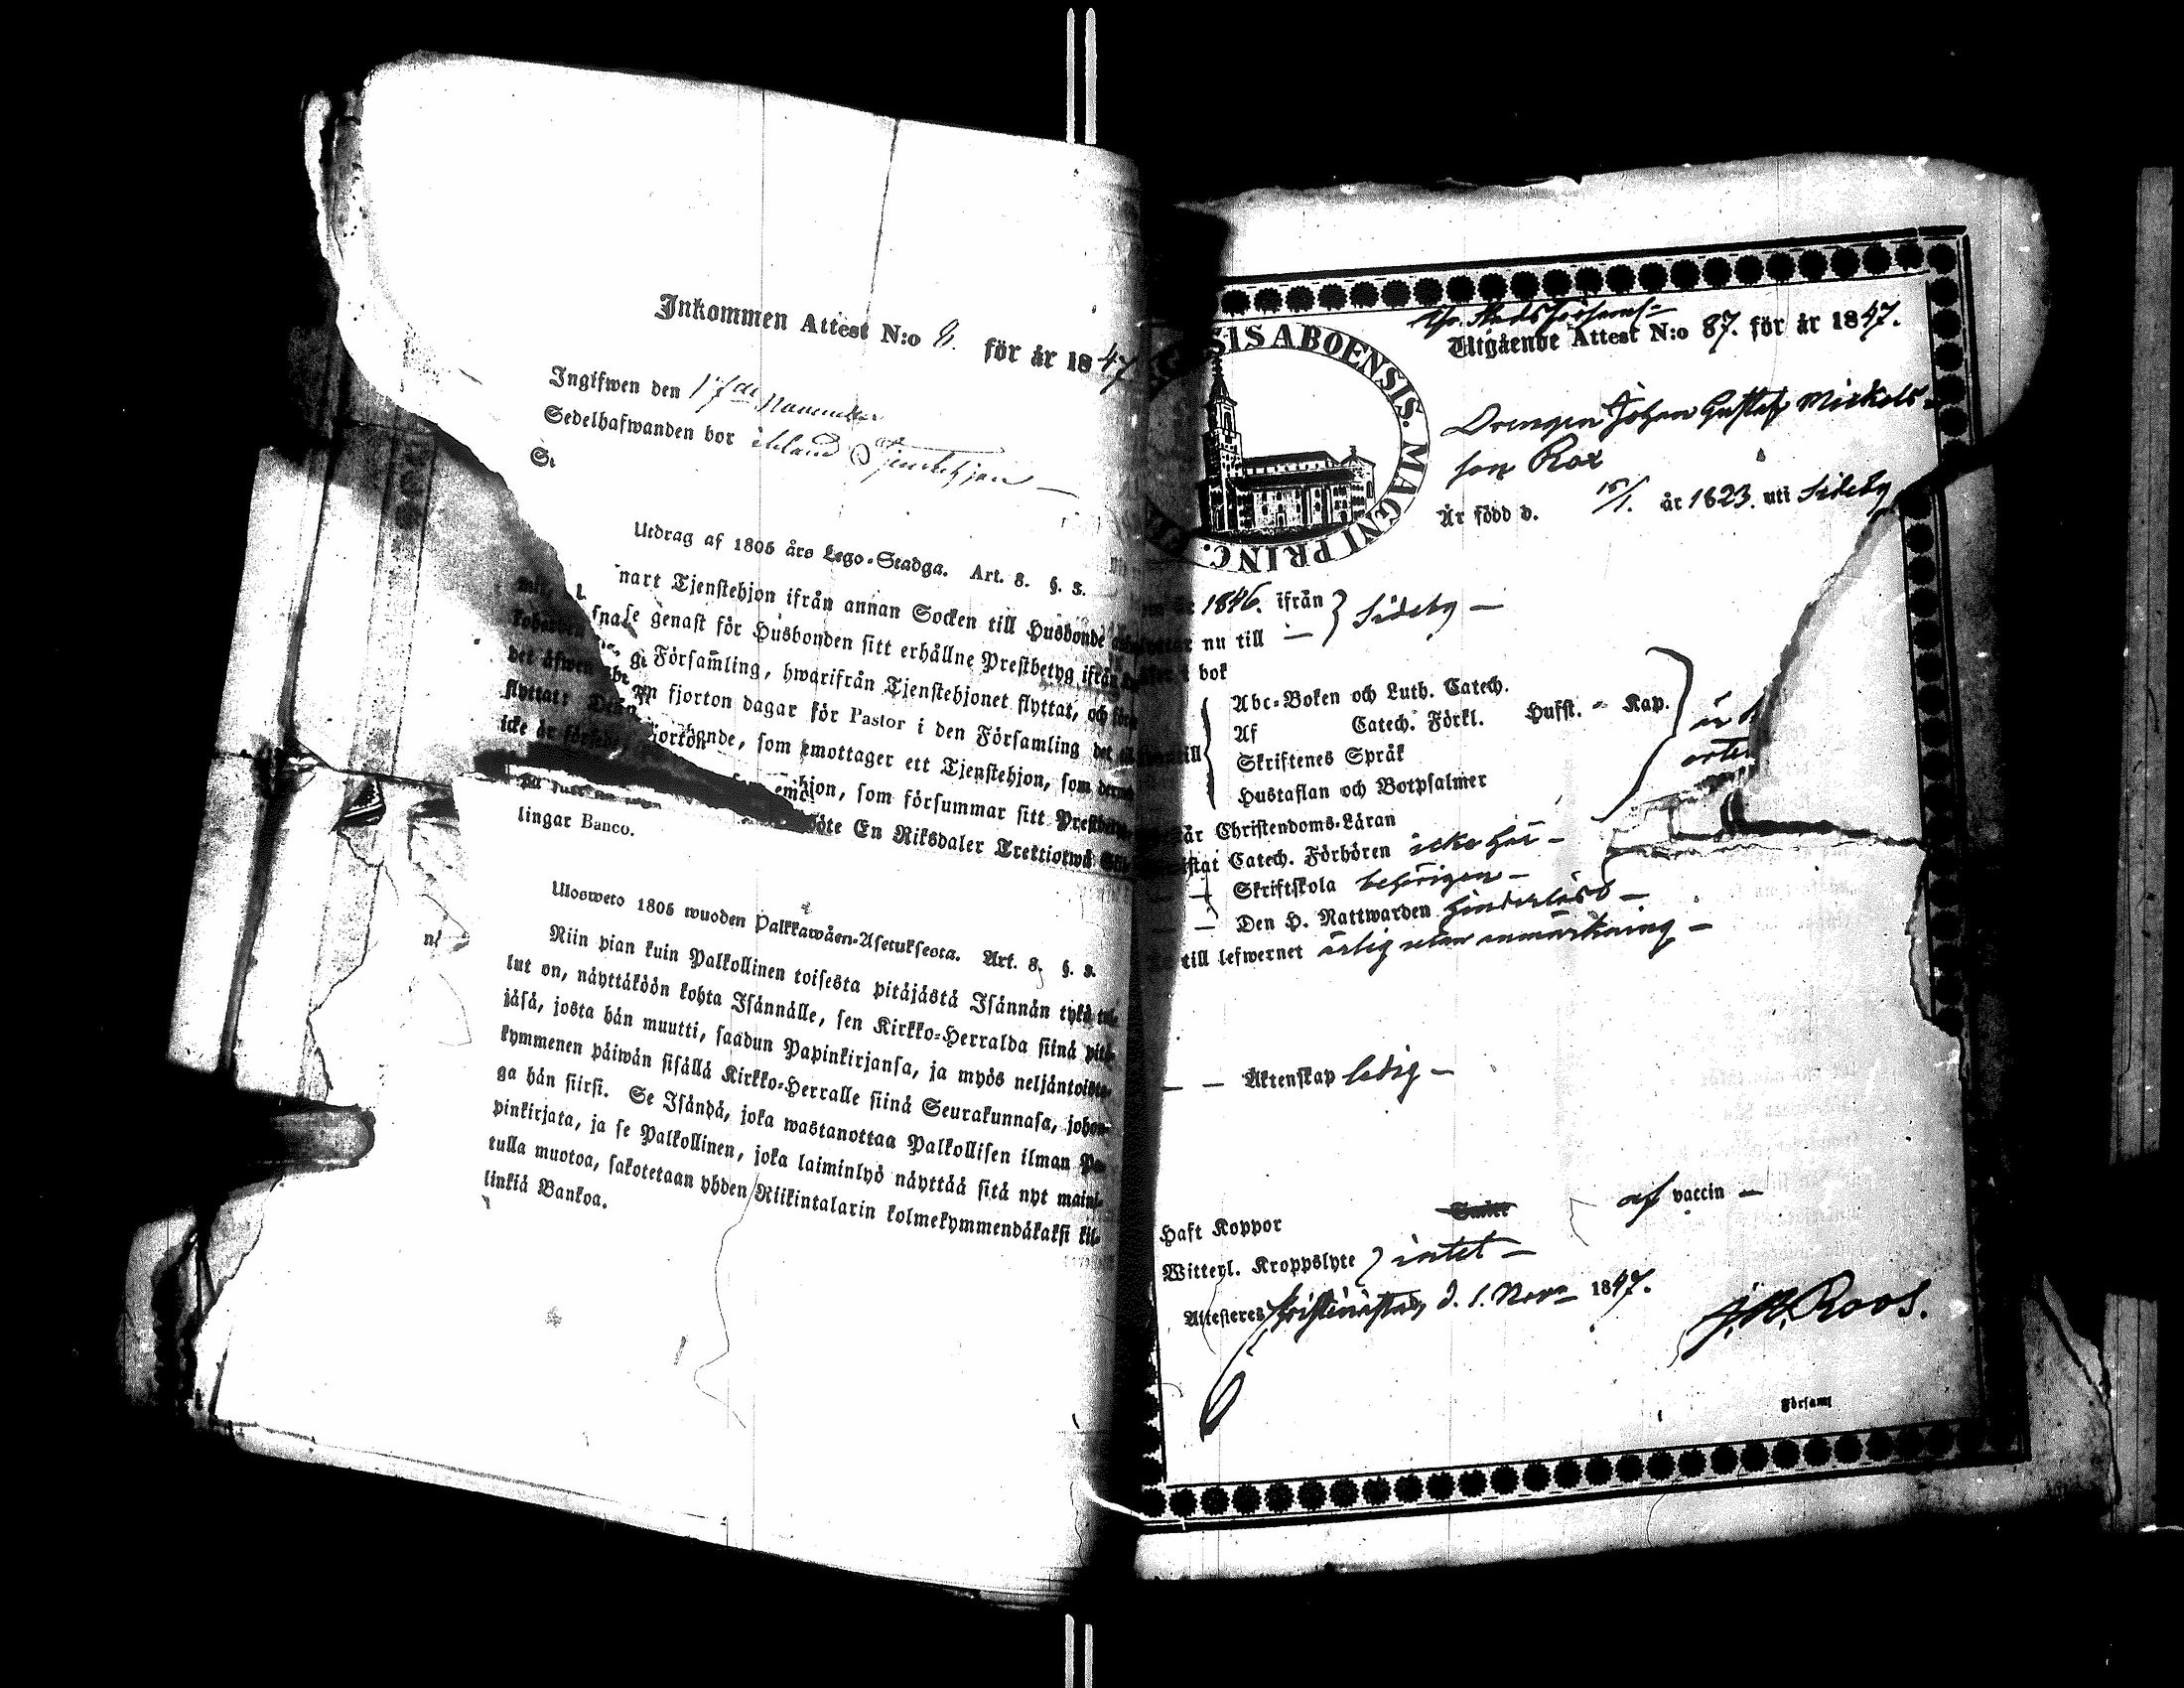 Inkommen Attest N:o 8. för år 1847
Ingifwen den 17de November
Sedelhafwanden bor ibland Tjenstehjon —
Utdrag af 1805 års Lego-Stadga. Art. 8. §. 3.
nart Tjenstehjon ifrån annan Socken till Husbonde
genast för Husbonden sitt erhållne Prestbetyg ifrån
Församling, hwarifrån Tjenstehjonet flyttat, och
fjorton dagar för Pastor i den Församling det
flyttat:
som emottager ett Tjenstehjon, som
icke är
som försummar sitt
En Riksdaler Trettiotwå
lingar Banco.
Ulosweto 1805 wuoden Palkkawäen-Asetuksesta. Art. 8. §. 3.
Niin pian kuin Palkollinen toisesta pitäjästä Isännän tykö tul-
lut on, näyttäköön kohta Isännälle, sen Kirkko-Herralda siinä pitä-
jäsä, josta hän muutti, saadun Papinkirjansa, ja myös neljäntoista-
kymmenen päiwän sisällä Kirkko-Herralle siinä Seurakunnasa, johon-
ga hän siirsi. Se Isändä, joka wastanottaa Palkollisen ilman Pa-
pinkirjata, ja se Palkollinen, joka laiminlyö näyttää sitä nyt maini-
tulla muotoa, sakotetaan yhden Riikintalarin kolmekymmendäkaksi kil-
linkiä Bankoa.
ABOENSIS. MAGNI PRINC.
Utgående Attest N:o 87. för år 1847.
Drengen Johan Gustaf Mickels-
son Rox
Är född d. 15/1. år 1823. uti Sideby
1846. ifrån } Sideby —
nu till —
i bok
Abc-Boken och Luth. Catech.
Af Catech. Förkl. Hufst. - Kap.
Skriftenes Språk
Hustaflan och Botpsalmer
Christendoms-Läran
Catech. Förhören icke här —
— — Skriftskola behörigen —
— — Den H. Nattwarden hinderlöst —
till lefwernet ärlig utan anmärkning —
— — Äktenskap ledig —
Haft Koppor af vaccin —
Witterl. Kroppslyte } intet —
Attesteres Christinestad, d. 1. Nov. 1847.
Roos.
Församl